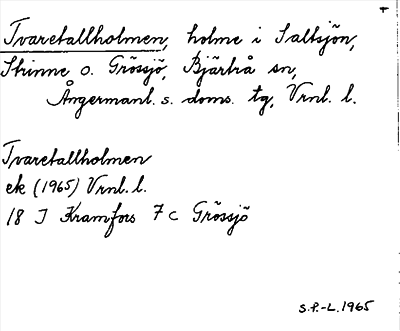 Tvaretallholmen, holme i Saltsjön,
Strinne o. Grössjö, Bjärtrå sn,
Ångermanl. s. doms. tg, Vrnl. l.
Tvaretallholmen
ek (1965) Vrnl. l.
18 I Kramfors 7 c Grössjö
S.P.-L. 1965